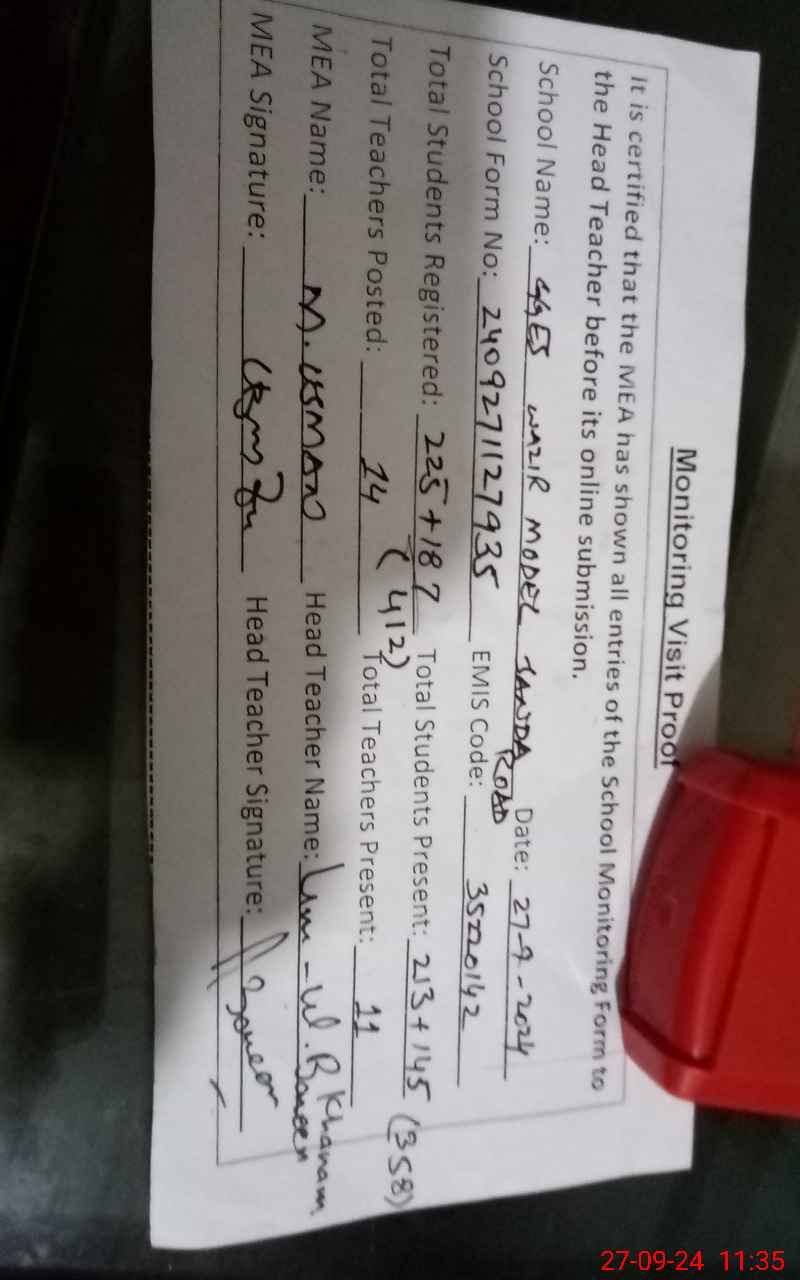 Monitoring Visit Proof
It is certified that the MEA has shown all entries of the School Monitoring Form to
the Head Teacher before its online submission.
School Name: GGES WAZIR MODEL SANDA ROAD Date: 27-9-2024
School Form No: 2409271127935 EMIS Code: 35220142
Total Students Registered: 225+187 (412) Total Students Present: 213+145 (358)
Total Teachers Posted: 14 Total Teachers Present: 11
MEA Name: M. USMAN Head Teacher Name: Khanam
MEA Signature: Head Teacher Signature:
27-09-24 11:35